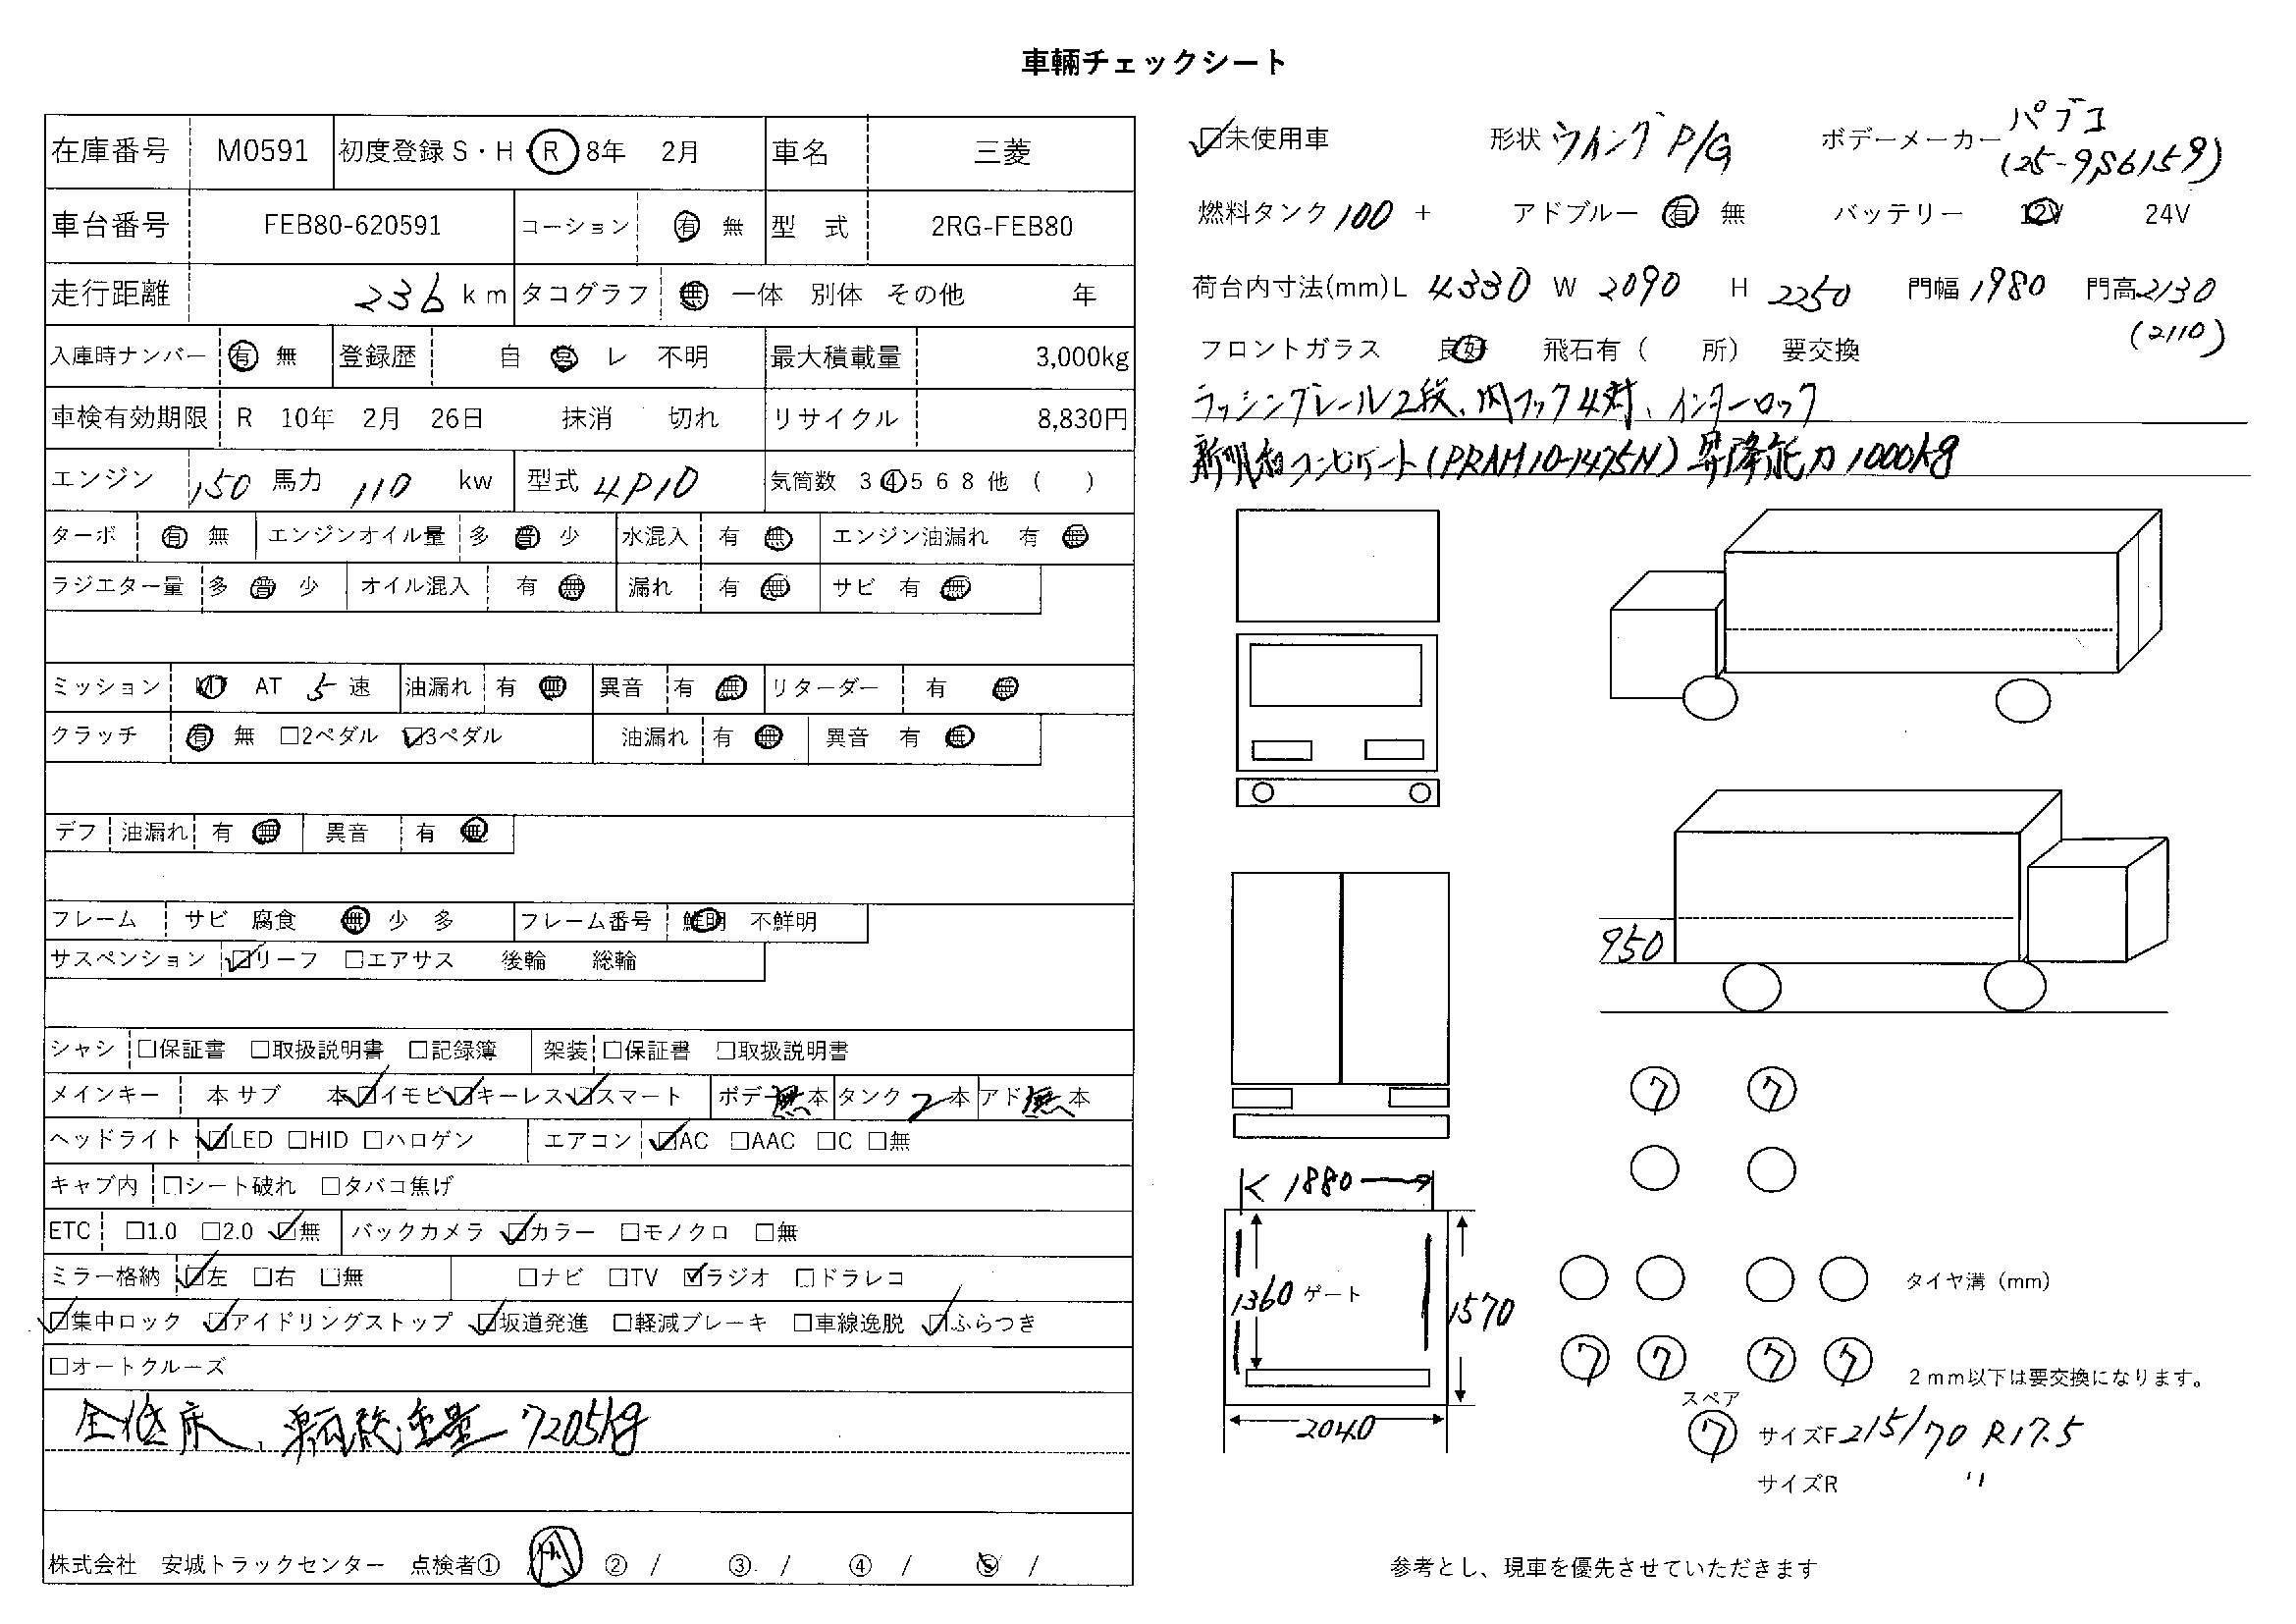 車輛チェックシート
在庫番号 M0591 初度登録 S・H・R 8年 2月 車名 三菱
車台番号 FEB80-620591 コーション 有 無 型 式 2RG-FEB80
走行距離 236 km タコグラフ 無 一体 別体 その他 年
入庫時ナンバー 有 無 登録歴 自 営 レ 不明 最大積載量 3,000kg
車検有効期限 R 10年 2月 26日 抹消 切れ リサイクル 8,830円
エンジン 150 馬力 110 kw 型式 4P10 気筒数 3 4 5 6 8 他 ( )
ターボ 有 無 エンジンオイル量 多 普 少 水混入 有 無 エンジン油漏れ 有 無
ラジエター量 多 普 少 オイル混入 有 無 漏れ 有 無 サビ 有 無
ミッション MT AT 5 速 油漏れ 有 無 異音 有 無 リターダー 有 無
クラッチ 有 無 □2ペダル ☑3ペダル 油漏れ 有 無 異音 有 無
デフ 油漏れ 有 無 異音 有 無
フレーム サビ 腐食 無 少 多 フレーム番号 鮮明 不鮮明
サスペンション ☑リーフ □エアサス 後輪 総輪
シャシ □保証書 □取扱説明書 □記録簿 架装 □保証書 □取扱説明書
メインキー 本 サブ 本 ☑イモビ ☑キーレス ☑スマート ボデー 無 本 タンク 2 本 アド 無 本
ヘッドライト ☑LED □HID □ハロゲン エアコン ☑AC □AAC □C □無
キャブ内 □シート破れ □タバコ焦げ
ETC □1.0 □2.0 ☑無 バックカメラ ☑カラー □モノクロ □無
ミラー格納 ☑左 □右 □無 □ナビ □TV ☑ラジオ □ドラレコ
☑集中ロック ☑アイドリングストップ ☑坂道発進 □軽減ブレーキ □車線逸脱 ☑ふらつき
□オートクルーズ
全低床、車両総重量 7205kg
株式会社 安城トラックセンター 点検者① / ② / ③ / ④ / ⑤ /
☑未使用車 形状 ウイング P/G ボデーメーカー パブコ
(25-9S6159)
燃料タンク 100 + アドブルー 有 無 バッテリー 12V 24V
荷台内寸法(mm) L 4330 W 2090 H 2250 門幅 1980 門高 2130
(2110)
フロントガラス 良好 飛石有 ( 所) 要交換
ラッシングレール2段、内フック4対、インターロック
新明和コンビゲート(PRAM10-1475N) 昇降能力1000kg
950
7 7
1880
1360 ゲート 1570
2040
タイヤ溝 (mm)
7 7 7 7
2mm以下は要交換になります。
スペア
7 サイズF 215/70 R17.5
サイズR 〃
参考とし、現車を優先させていただきます